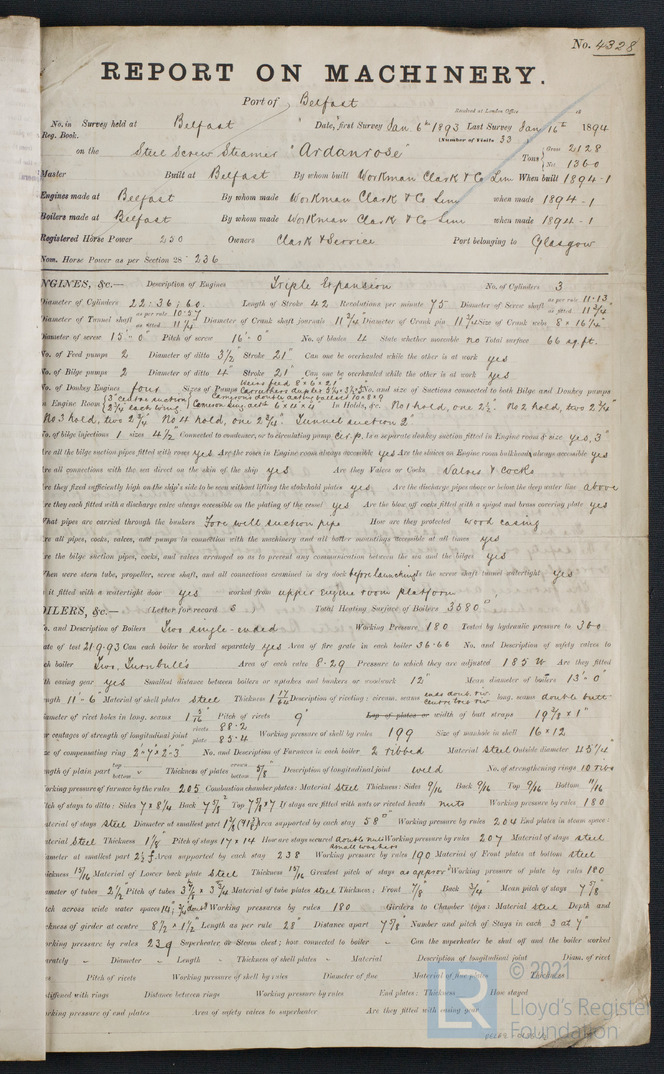 No. 4328
REPORT ON MACHINERY.
Port of Belfast
Received at London Office
No. in Survey held at Belfast Date, first Survey Jan 6th 1893 Last Survey Jan 16th 1894
Reg. Book. (Number of Visits 33
on the Steel Screw Steamer "Ardanrose" Tons Gross 2128 Net 1360
Master Built at Belfast By whom built Workman Clark & Co Lim When built 1894-1
Engines made at Belfast By whom made Workman Clark & Co Lim when made 1894-1
Boilers made at Belfast By whom made Workman Clark & Co Lim when made 1894-1
Registered Horse Power 250 Owners Clark & Service Port belonging to Glasgow
Nom. Horse Power as per Section 28 236
NGINES, &c.— Description of Engines Triple Expansion No. of Cylinders 3
Diameter of Cylinders 22: 36: 60. Length of Stroke 42 Revolutions per minute 75 Diameter of Screw shaft as per rule 11.13 as fitted 11 3/4"
Diameter of Tunnel shaft as per rule 10.57 as fitted 11 1/4 Diameter of Crank shaft journals 11 3/4" Diameter of Crank pin 11 3/4 Size of Crank webs 8 × 16 1/4"
Diameter of screw 15'-0" Pitch of screw 16'-0" No. of blades 4 State whether moveable no Total surface 66 sq.ft.
No. of Feed pumps 2 Diameter of ditto 3 1/2" Stroke 21" Can one be overhauled while the other is at work yes
No. of Bilge pumps 2 Diameter of ditto 4" Stroke 21" Can one be overhauled while the other is at work yes
No. of Donkey Engines four Sizes of Pumps Weirs feed 8×6×21" No. and size of Suctions connected to both Bilge and Donkey pumps
In Engine Room 3" centre suction 2 3/4 each wing In Holds, &c. No 1 hold, one 2 1/2. No 2 hold, two 2 3/4"
No 3 hold, two 2 3/4" No 4 hold, one 2 3/4" Tunnel suction 2"
No. of bilge injections 1 sizes 4 1/2" Connected to condenser, or to circulating pump cir. p. Is a separate donkey suction fitted in Engine room & size yes, 3"
Are all the bilge suction pipes fitted with roses yes Are the roses in Engine room always accessible yes Are the sluices on Engine room bulkheads always accessible yes
Are all connections with the sea direct on the skin of the ship yes Are they Valves or Cocks Valves & cocks
Are they fixed sufficiently high on the ship's side to be seen without lifting the stokehold plates yes Are the discharge pipes above or below the deep water line above
Are they each fitted with a discharge valve always accessible on the plating of the vessel yes Are the blow off cocks fitted with a spigot and brass covering plate yes
What pipes are carried through the bunkers Fore well suction pipe How are they protected wood casing
Are all pipes, cocks, valves, and pumps in connection with the machinery and all boiler mountings accessible at all times yes
Are the bilge suction pipes, cocks, and valves arranged so as to prevent any communication between the sea and the bilges yes
When were stern tube, propeller, screw shaft, and all connections examined in dry dock before launching Is the screw shaft tunnel watertight yes
Is it fitted with a watertight door yes worked from upper engine room platform
OILERS, &c.— (Letter for record S Total Heating Surface of Boilers 3580
No. and Description of Boilers Two single-ended Working Pressure 180 Tested by hydraulic pressure to 360
ate of test 21.9.93 Can each boiler be worked separately yes Area of fire grate in each boiler 36.66 No. and Description of safety valves to
ch boiler Two. Turnbull's Area of each valve 8.29 Pressure to which they are adjusted 185 Are they fitted
th easing gear yes Smallest distance between boilers or uptakes and bunkers or woodwork 12" Mean diameter of boilers 13'-0"
ngth 11'-6" Material of shell plates steel Thickness 1 17/64 Description of riveting: circum. seams ends doub. riv centre tres riv long. seams double butt
iameter of rivet holes in long. seams 1 5/16 Pitch of rivets 9" Lap of plates or width of butt straps 19 7/8 × 1"
er centages of strength of longitudinal joint rivets 88.2 plate 85.4 Working pressure of shell by rules 199 Size of manhole in shell 16×12
ze of compensating ring 2'-7"×2'-3" No. and Description of Furnaces in each boiler 2 ribbed Material steel Outside diameter 45 1/4"
ngth of plain part top bottom Thickness of plates crown bottom 5/8" Description of longitudinal joint weld No. of strengthening rings 10 ribs
orking pressure of furnace by the rules 205 Combustion chamber plates: Material steel Thickness: Sides 9/16 Back 9/16 Top 9/16 Bottom 11/16
tch of stays to ditto: Sides 7×8 1/4 Back 7 5/8" Top 7 5/8×7 If stays are fitted with nuts or riveted heads nuts Working pressure by rules 180
aterial of stays steel Diameter at smallest part Area supported by each stay 58" Working pressure by rules 204 End plates in steam space:
aterial steel Thickness 1 1/8" Pitch of stays 17×14 How are stays secured double nuts small washers Working pressure by rules 207 Material of stays steel
ameter at smallest part 2 1/2 Area supported by each stay 238 Working pressure by rules 190 Material of Front plates at bottom steel
ickness 15/16 Material of Lower back plate steel Thickness 15/16 Greatest pitch of stays as approx" Working pressure of plate by rules 180
ameter of tubes 2 1/2 Pitch of tubes 3 5/8 × 3 3/4 Material of tube plates steel Thickness: Front 7/8 Back 3/4" Mean pitch of stays 7 5/8"
tch across wide water spaces 14" Working pressures by rules 180 Girders to Chamber tops: Material steel Depth and
ickness of girder at centre 8 1/2 × 1 1/2" Length as per rule 28" Distance apart 7 5/8" Number and pitch of Stays in each 3 at 7"
orking pressure by rules 239 Superheater or Steam chest; how connected to boiler Can the superheater be shut off and the boiler worked
arately Diameter Length Thickness of shell plates Material Description of longitudinal joint Diam. of rivet
Pitch of rivets Working pressure of shell by rules Diameter of flue Material of flue plates Thickness
stiffened with rings Distance between rings Working pressure by rules End plates: Thickness How stayed
orking pressure of end plates Area of safety valves to superheater Are they fitted with easing gear
© 2021
LR
Lloyd's Register
Foundation